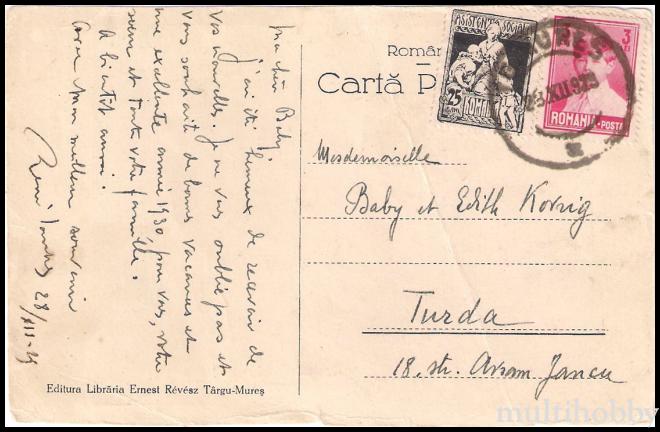 Ma chère Baby,
j'ai été heureux de recevoir de
vos nouvelles. Je ne vous oublie pas et
vous souhaite de bonnes vacances et
une excellente année 1930 pour vous, votre
soeur et toute votre famille.
A bientôt aussi.
Avec mon meilleur souvenir
28/XII-29
Editura Librăria Ernest Révész Târgu-Mureș
Român
Cartă P
ASISTENȚA SOCIALA
25
BANI
ROMÂNIA
3
LEI
ROMANIA-POSTA
MUREȘ
XII 929
Mesdemoiselle
Baby et Edith Kornig
Turda
18. str. Avram Jancu
multihobby